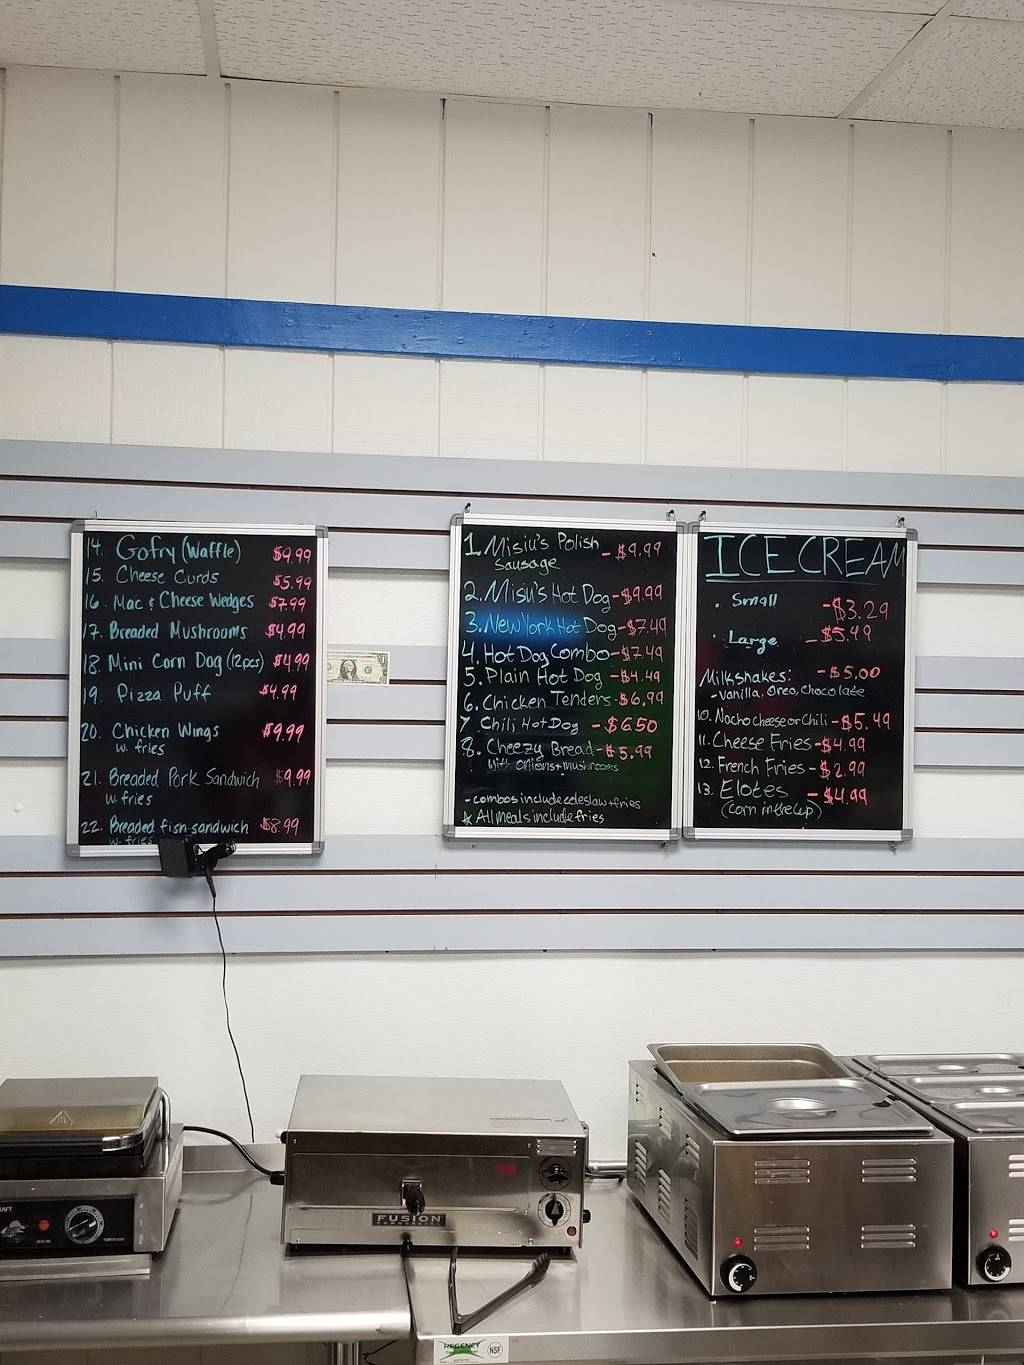 14. Gofry (Waffle) $9.99
15. Cheese Curds $5.99
16. Mac & Cheese Wedges $7.99
17. Breaded Mushrooms $4.99
18 Mini Corn Dog (12pcs) $4.99
19. Pizza Puff $4.99
20. Chicken Wings $9.99
w. fries
21. Breaded Pork Sandwich $9.99
w. fries
22. Breaded fish sandwich $8.99
w. fries
1. Misiu's Polish - $9.99
Sausage
2. Misiu's Hot Dog - $9.99
3. New York Hot Dog - $7.49
4. Hot Dog Combo - $7.49
5. Plain Hot Dog - $4.49
6. Chicken Tenders - $6.99
7. Chili Hot Dog - $6.50
8. Cheezy Bread - $5.99
with onions + mushrooms
- combos include coleslaw + fries
* All meals include fries
ICE CREAM
. Small - $3.29
. Large - $5.49
Milkshakes: - $5.00
- Vanilla, Oreo, Chocolate
10. Nacho Cheese or Chili - $5.49
11. Cheese Fries - $4.99
12. French Fries - $2.99
13. Elotes - $4.99
(corn in the cup)
FUSION
REGENCY
NSF